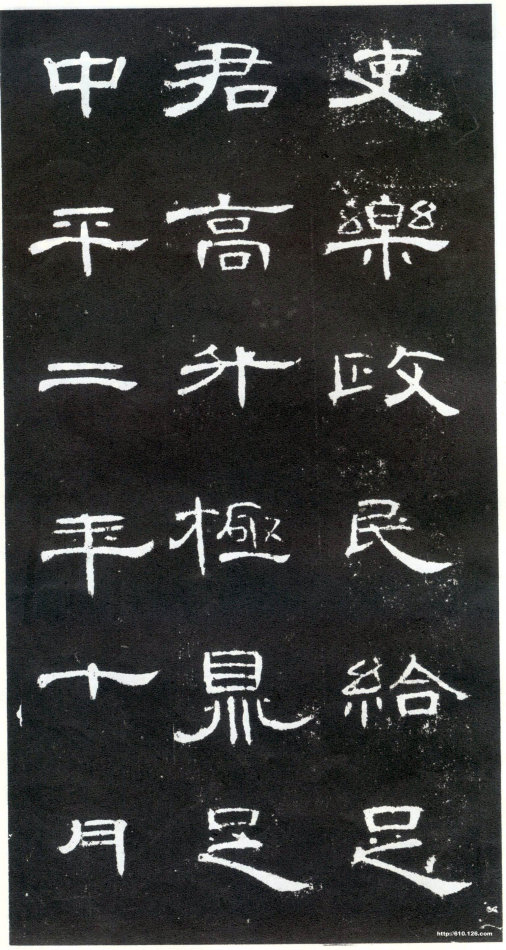 吏樂政民給足
君高升極鼎足
中平二年十月
http://610.126.com